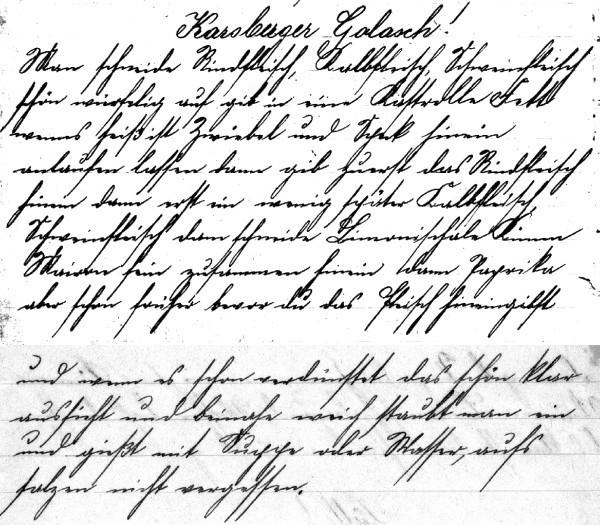 Karsberger Golasch!
Man schneide Rindfleisch, Kalbfleisch, Schweinfleisch
schön würfelig auf gib in eine Kastrolle Fett
wenns heiß ist Zwiebel und Speck hinein
anlaufen lassen dann gib zuerst das Rindfleisch
hinein dann erst ein wenig später Kalbfleisch,
Schweinfleisch dann schneide Limonischale Kümm
Mairon fein zusammen hinein dann Paprika
aber schon früher bevor du das Fleisch hineingibst
und wenn es schon verdünstet das schön klar
aussieht und beinahe weich staubt man ein
und gießt mit Suppe oder Wasser, aufs
salzen nicht vergessen.